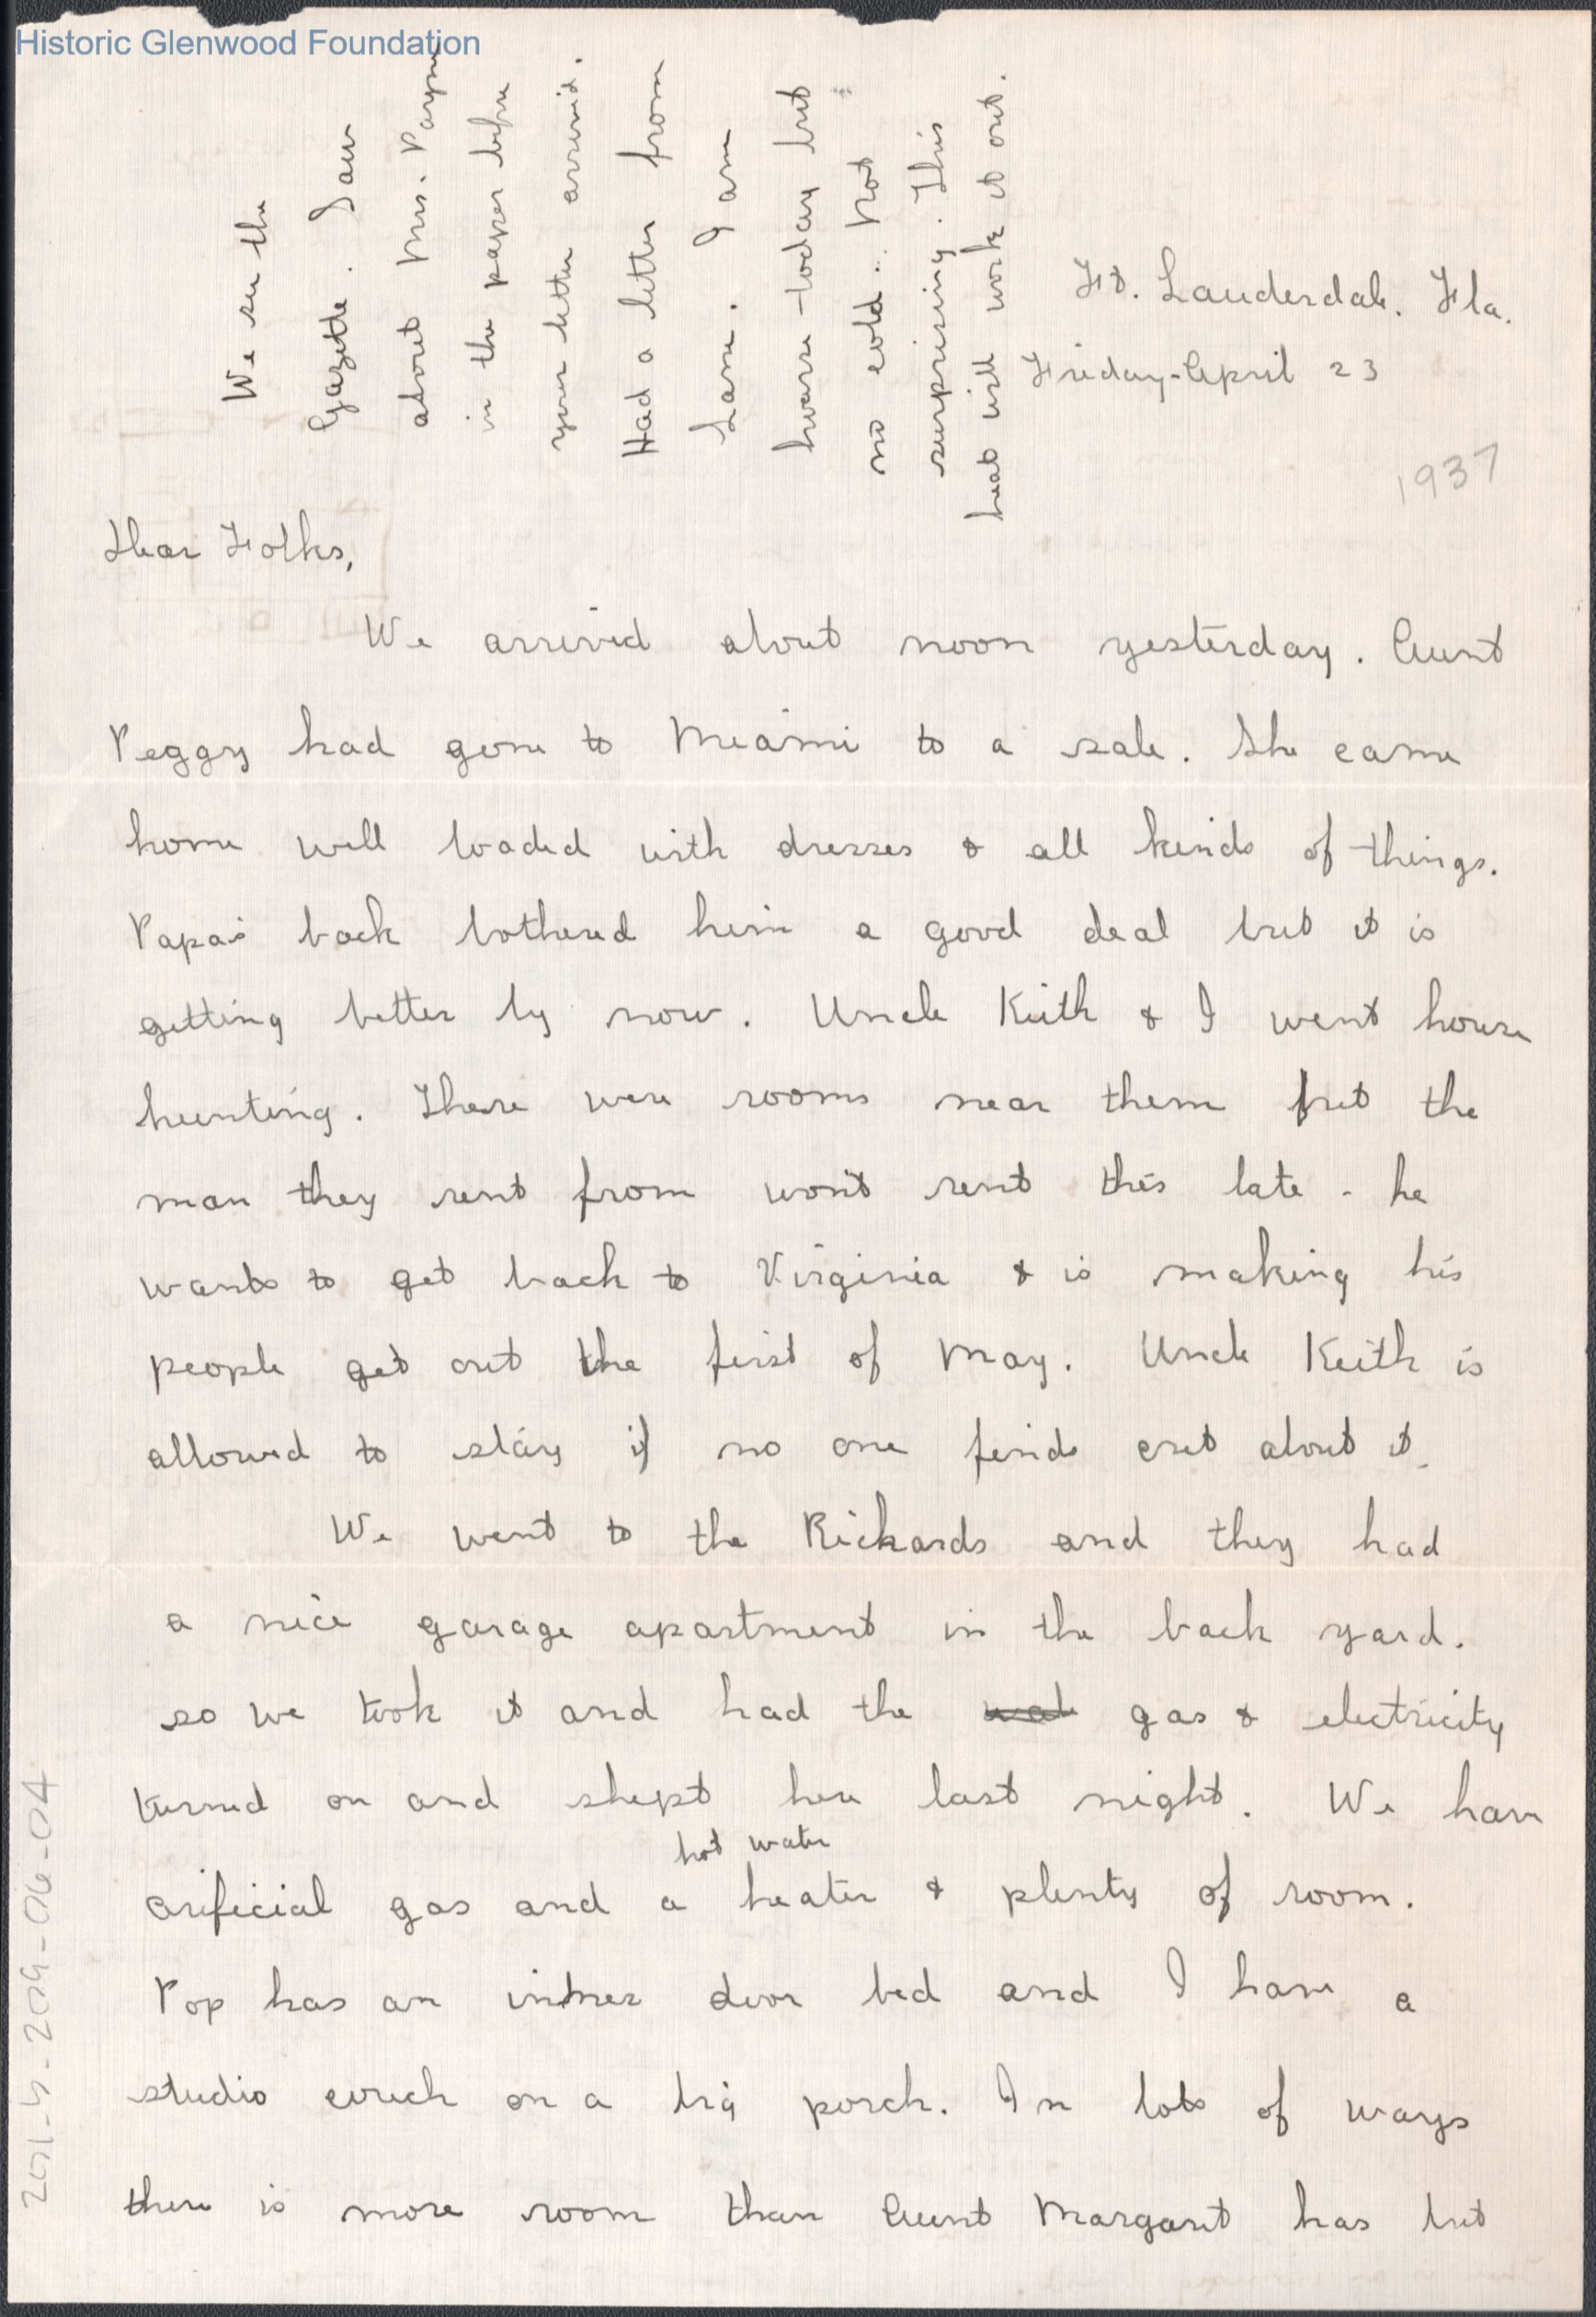 Historic Glenwood Foundation
We see the
Gazette. Saw
about Mrs. Payne
in the paper before
your letter arrived.
Had a letter from
Lane. I am
hoarse today but
no cold. Not
surprising. This
heat will work it out.
Ft. Lauderdale. Fla.
Friday-April 23
1937
Dear Folks,
We arrived about noon yesterday. Aunt
Peggy had gone to Miami to a sale. She came
home well loaded with dresses & all kinds of things.
Papa's back bothered him a good deal but it is
getting better by now. Uncle Keith & I went house
hunting. There were rooms near them but the
man they rent from won't rent this late - he
wants to get back to Virginia & is making his
people get out the first of May. Uncle Keith is
allowed to stay if no one finds out about it.
We went to the Rickards and they had
a nice garage apartment in the back yard.
so we took it and had the wat gas & electricity
turned on and shept here last night. We have
hot water
arificial gas and a heater & plenty of room.
Pop has an door bed and I have a
studio couch on a big porch. In lots of ways
there is more room than Aunt Margaret has but
201-5-209-06-04